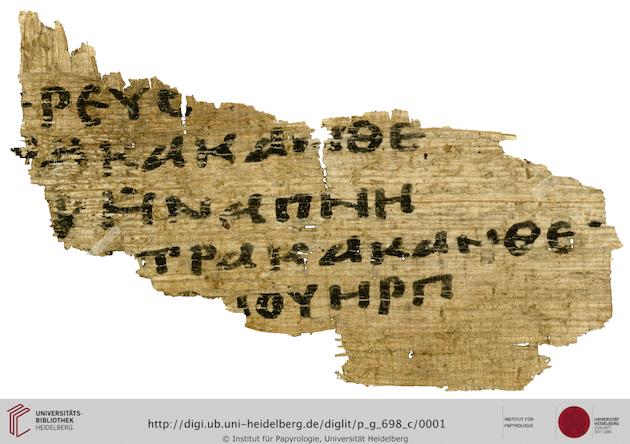 ⲣⲉⲩⲥ
ⲁⲕⲁⲕⲁⲛ'ⲑⲉ
ⲏⲛⲁⲡⲏⲏ
ⲧⲣⲁⲕⲁⲕⲁⲛ'ⲑⲉ
ⲟⲩⲏⲣⲡ
UNIVERSITÄTS-
BIBLIOTHEK
HEIDELBERG
http://digi.ub.uni-heidelberg.de/diglit/p_g_698_c/0001
© Institut für Papyrologie, Universität Heidelberg
INSTITUT FÜR
PAPYROLOGIE
UNIVERSITÄT
HEIDELBERG
ZUKUNFT
SEIT 1386